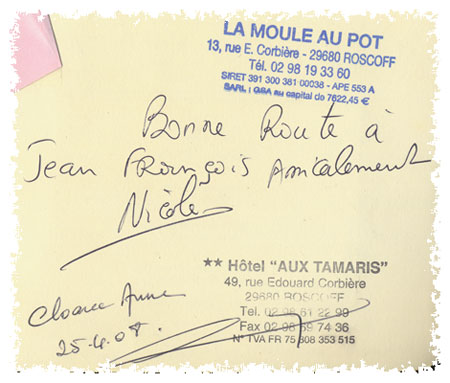 LA MOULE AU POT
13, rue E. Corbière - 29680 ROSCOFF
Tél. 02 98 19 33 60
SIRET 391 300 381 00038 - APE 553 A
SARL : GSA au capital de 7622,45 €
Bonne Route à
Jean François Amicalement
Nicole
** Hôtel "AUX TAMARIS"
49, rue Edouard Corbière
29680 ROSCOFF
Tel. 02 98 61 22 99
Fax 02 98 69 74 36
N° TVA FR 75 308 353 515
Anne
25.4.07.